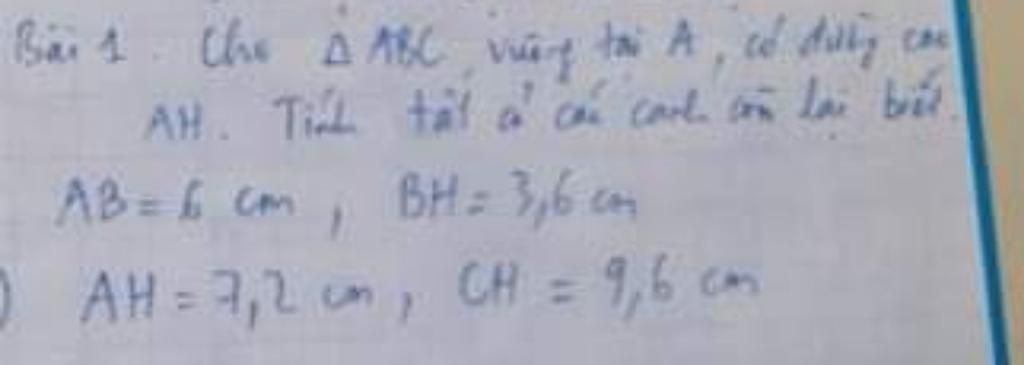 Bài 1. Cho Δ ABC vuông tại A, có đường cao
AH. Tính tất cả các cạnh còn lại biết.
AB = 6 cm, BH = 3,6 cm
) AH = 7,2 cm, CH = 9,6 cm